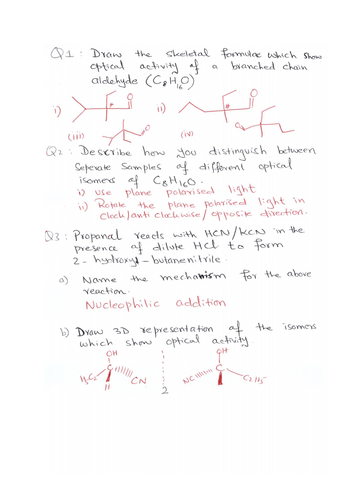 Q1 : Draw the skeletal formulae which show
optical activity of a branched chain
aldehyde (C8H16O)
i) ii)
(iii) (iv)
Q2 : Describe how you distinguish between
Seperate Samples of different optical
isomers of C8H16O.
i) Use plane polarised light
ii) Rotate the plane polarised light in
clock/anti clockwise/opposite direction.
Q3 : Propanal reacts with HCN/KCN in the
presence of dilute HCl to form
2-hydroxyl-butanenitrile.
a) Name the mechanism for the above
reaction.
Nucleophilic addition
b) Draw 3D representation of the isomers
which show optical activity.
OH OH
C C
H5C2 CN NC C2H5
H
2